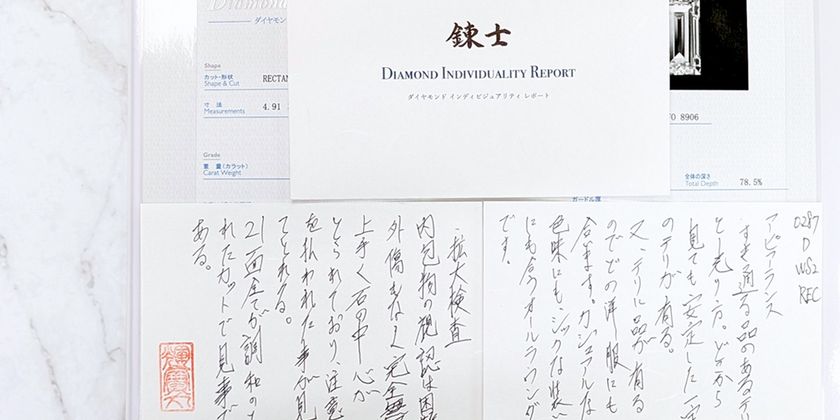 Diamond
ダイヤモン
Shape
カット・形状
Shape & Cut
RECTAN
寸 法
Measurements
4.91
Grade
重 量(カラット)
Carat Weight
錬士
DIAMOND INDIVIDUALITY REPORT
ダイヤモンド インディビジュアリティ レポート
8906
全体の深さ
Total Depth
78.5%
ガードル厚
0.287
D
VVS2
REC
アピアランス
すき通る品のあるテ
見ても安定した一定
のテリが有る。
又、テリに品が有る
のでどの洋服にも
合います。カジュアルな
色味にもシックな装
にも合うオールラウンド
です。
拡大検査
内包物の視認は困
外傷もなく完全無
上手く石の中心が
とられており、注意
を払われた事が見
てとれる。
21面全てが調和の
れたカットで見事で
ある。